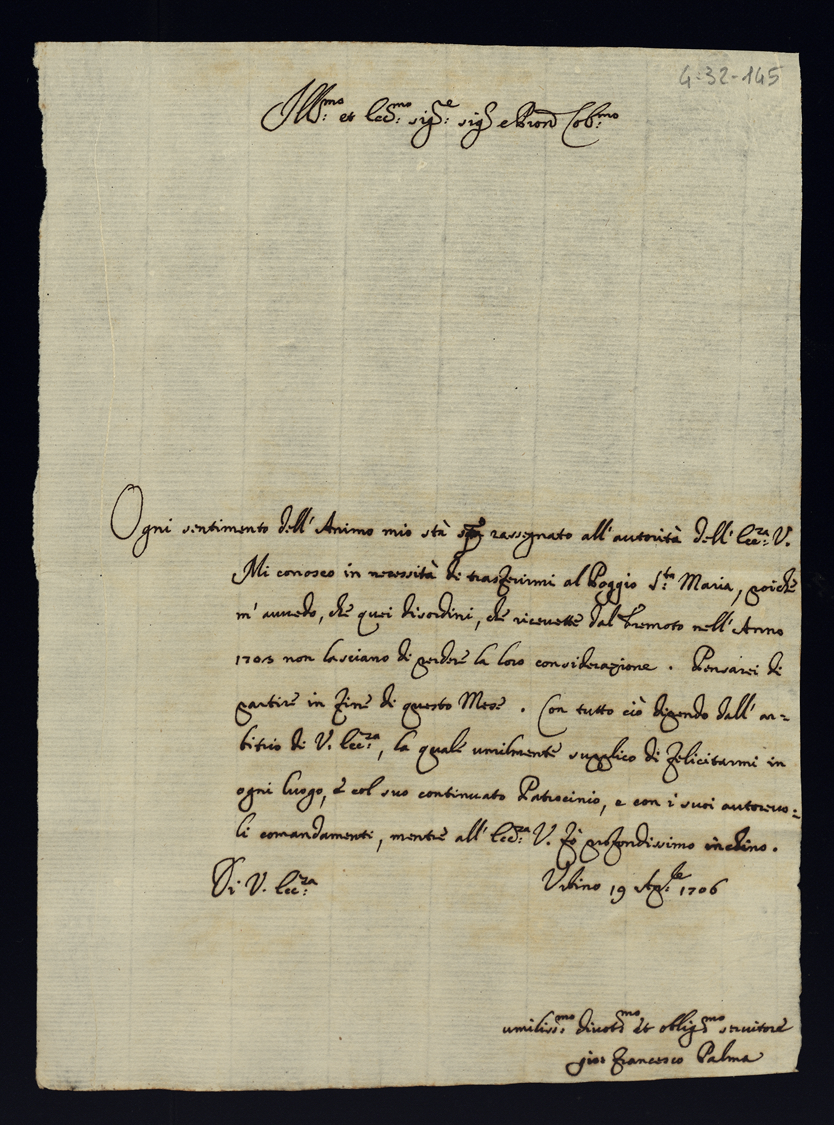 4-32-145
Ill.mo et Ecc.mo Sig.re Sig. e Pron Col.mo
Ogni sentimento dell'Animo mio stà rassegnato all'autorità dell'Ecc.za V.
Mi conosco in necessità di trasferirmi al Poggio S.ta Maria, poiche
m'auuedo, che quei disordini, che riceuette dal Tremoto nell'Anno
1703 non lasciano di perdere la loro considerazione. Pensarei di
partire in fine di questo Mese. Con tutto ciò dipendo dall'ar=
bitrio di V. Ecc.za, la quale umilmente supplico di felicitarmi in
ogni luogo, e col suo continuato Patrocinio, e con i suoi autoreuo=
li comandamenti, mentre all'Ecc.za V. fò profondissimo inchino.
Di V. Ecc.za
Urbino 19 Ap.le 1706
umiliss.mo diuot.mo et oblig.mo seruitore
Gio: Francesco Palma